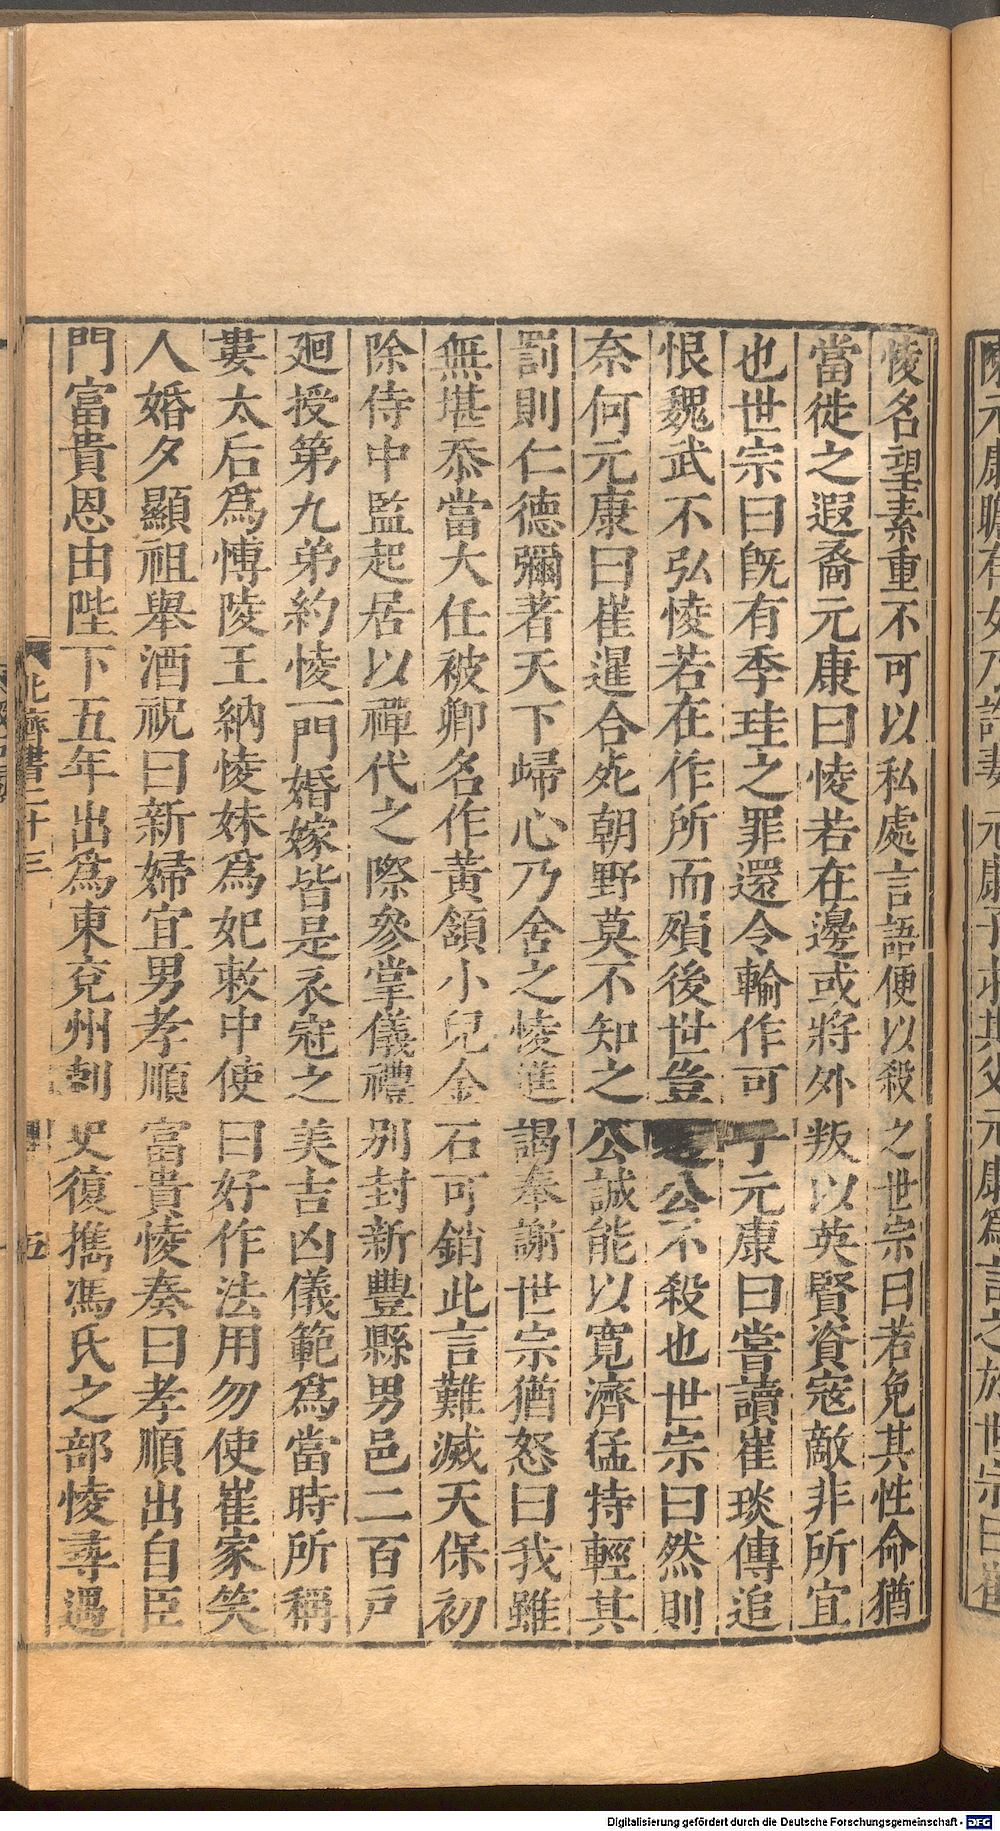 㥄名望素重不可以私處言語便以殺之世宗曰若免其性命猶
當徙之遐裔元康曰㥄若在邊或將外叛以英賢資寇敵非所宜
也世宗曰旣有季珪之罪還令輸作可乎元康曰嘗讀崔琰傳追
恨魏武不弘㥄若在作所而殞後世豈 公不殺也世宗曰然則
奈何元康曰崔暹合死朝野莫不知之公誠能以寛濟猛特輕其
罰則仁德彌著天下歸心乃舍之㥄進謁奉謝世宗猶怒曰我雖
無堪忝當大任被卿名作黃頷小兒金石可銷此言難滅天保初
除侍中監起居以禪代之際參掌儀禮別封新豐縣男邑二百戶
廻授第九弟約㥄一門婚嫁皆是衣冠之美吉凶儀範爲當時所稱
婁太后爲博陵王納㥄妹爲妃敕中使曰好作法用勿使崔家笑
人婚夕顯祖舉酒祝曰新婦宜男孝順富貴㥄奏曰孝順出自臣
門富貴恩由陛下五年出爲東兗州刺史復擕馮氏之部㥄尋遇
北齊書二十三 五
Digitalisierung gefördert durch die Deutsche Forschungsgemeinschaft - DFG